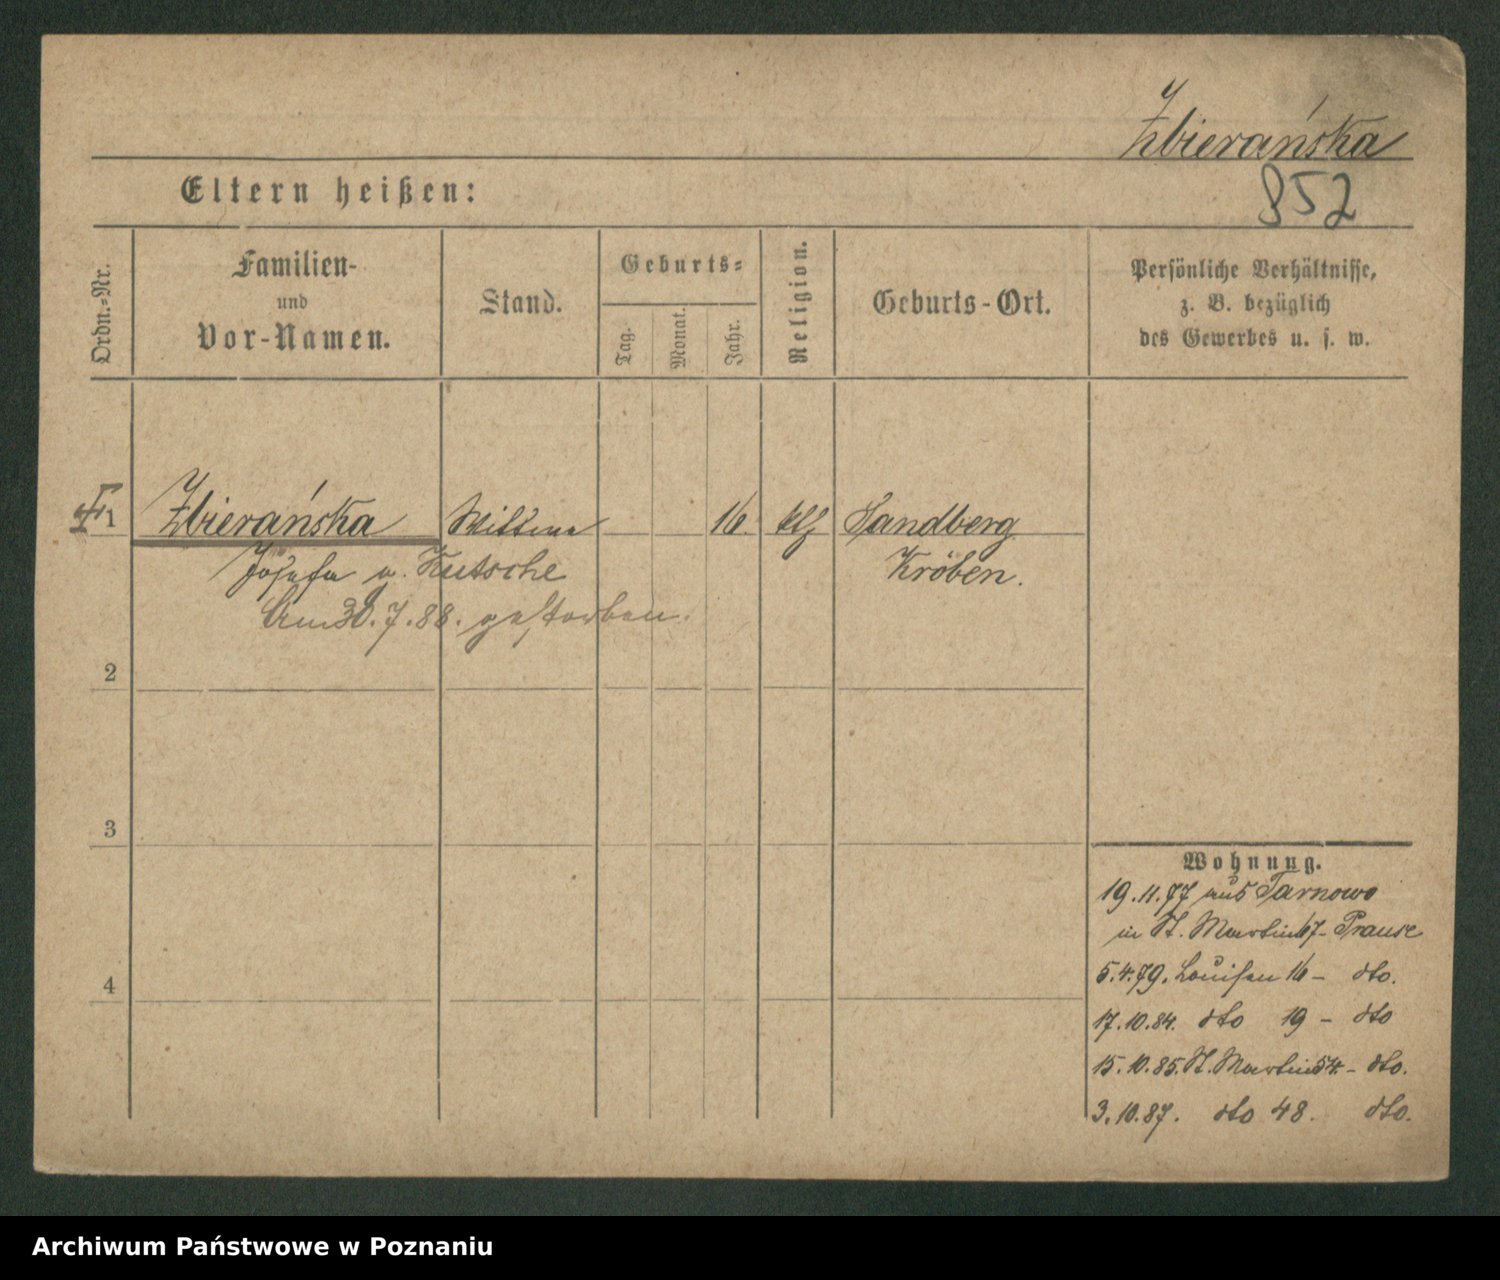 Zbierańska
852
Eltern heißen:
Ordn.-Nr.
Familien-
und
Vor-Namen.
Stand.
Geburts-
Tag.
Monat.
Jahr.
Religion.
Geburts-Ort.
Persönliche Verhältnisse,
z. B. bezüglich
des Gewerbes u. s. w.
1 Zbierańska Wittwe 16. kth Sandberg
Josefa v. Kutsche Kröben.
Am 30.7.88. gestorben.
2
3
4
Wohnung.
19.11.77 aus Tarnowo
in St. Martin 67- Prause
5.4.79. Louisen 16 - dto.
17.10.84. dto 19 - dto
15.10.85. St. Martin 54. - dto.
3.10.87. dto 48. dto.
Archiwum Państwowe w Poznaniu